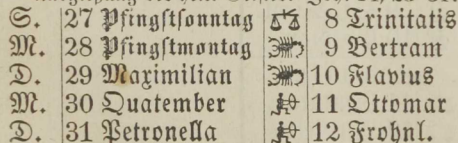 S. 27 Pfingstsonntag 8 Trinitatis
M. 28 Pfingstmontag 9 Bertram
D. 29 Maximilian 10 Flavius
M. 30 Quatember 11 Ottomar
D. 31 Petronella 12 Frohnl.